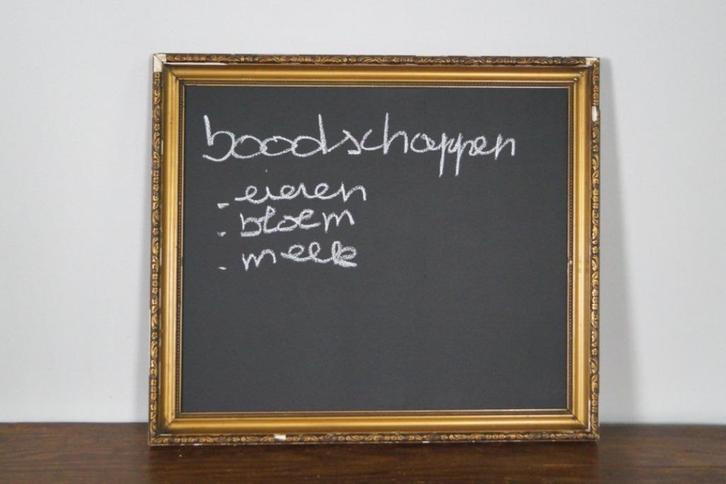 boodschappen
- eieren
- bloem
- melk